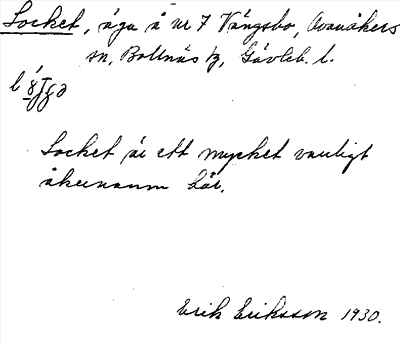 Locket, äga å nr 7 Vängsbo, Arbrå
sn, Bollnäs tg, Gävleb. l.
Locket är ett mycket vanligt
åkernamn här.
Erik Eriksson 1930.